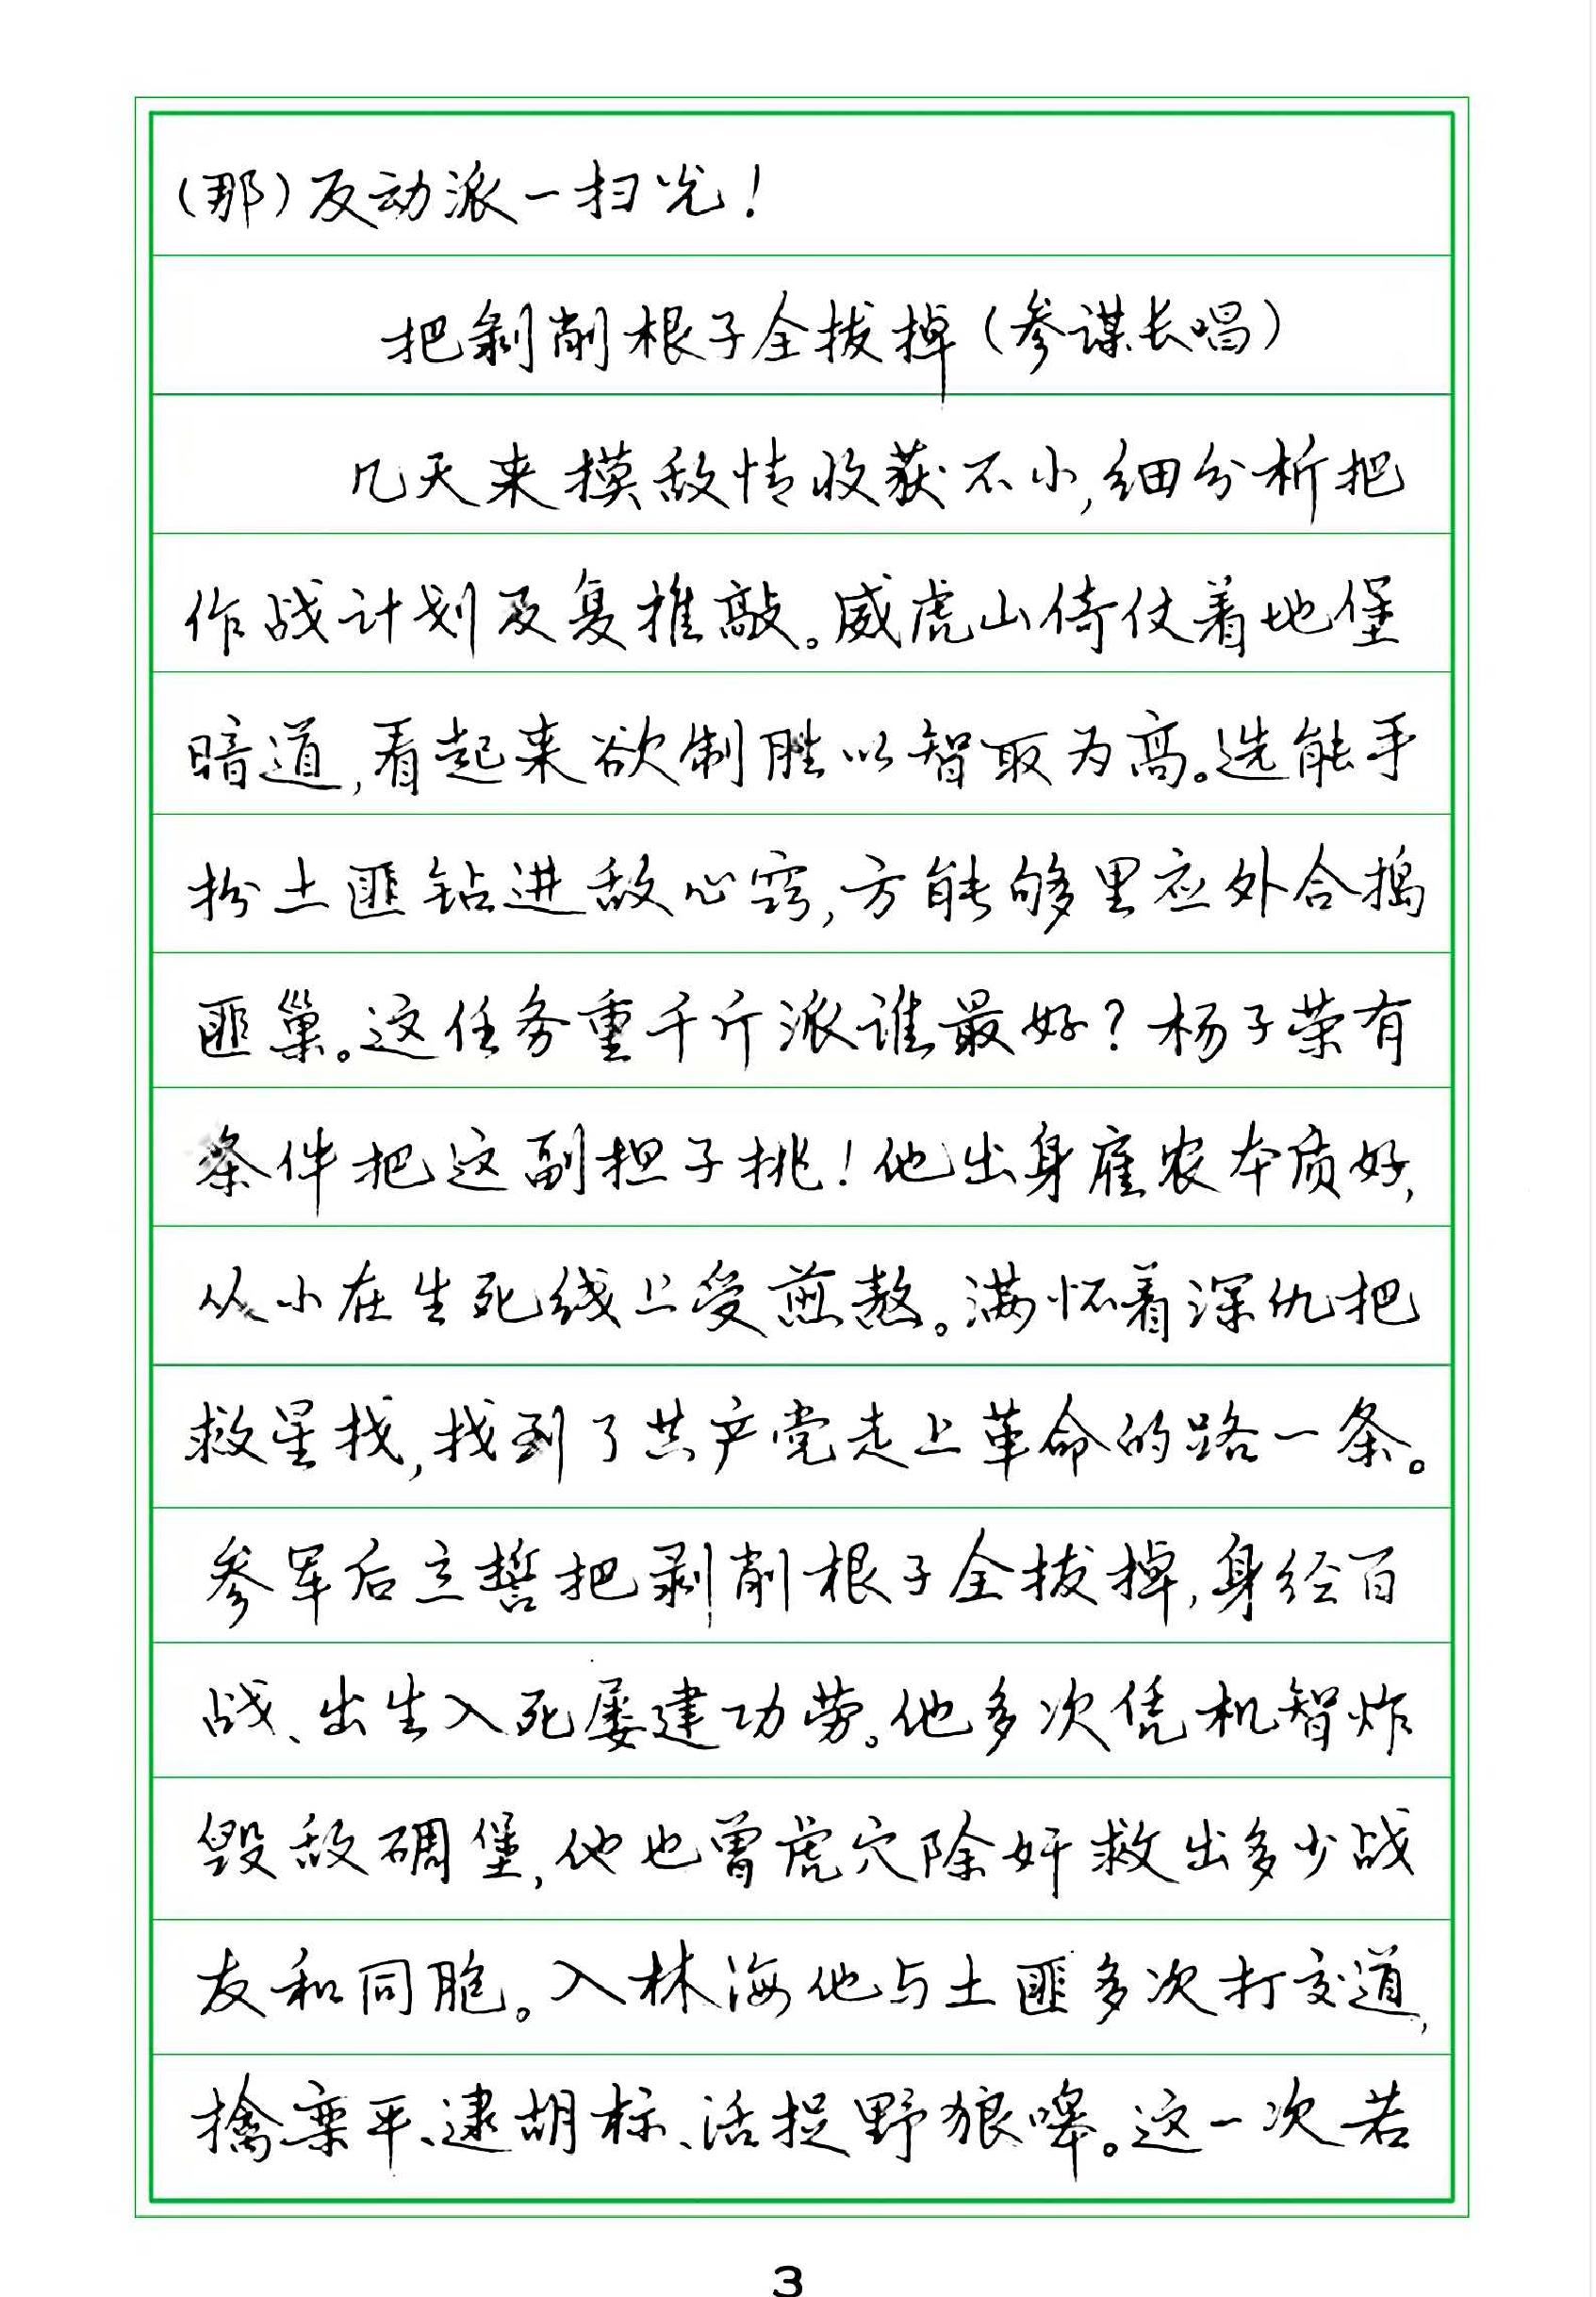 (那)反动派一扫光!
把剥削根子全拔掉(参谋长唱)
几天来摸敌情收获不小,细分析把
作战计划反复推敲。威虎山倚仗着地堡
暗道,看起来欲制胜以智取为高。选能手
扮土匪钻进敌心窍,方能够里应外合捣
匪巢。这任务重千斤派谁最好?杨子荣有
条件把这副担子挑!他出身雇农本质好,
从小在生死线上受煎熬。满怀着深仇把
救星找,找到了共产党走上革命的路一条。
参军后立誓把剥削根子全拔掉,身经百
战、出生入死屡建功劳。他多次凭机智炸
毁敌碉堡,他也曾虎穴除奸救出多少战
友和同胞。入林海他与土匪多次打交道,
擒栾平、逮胡标、活捉野狼嗥。这一次若
3